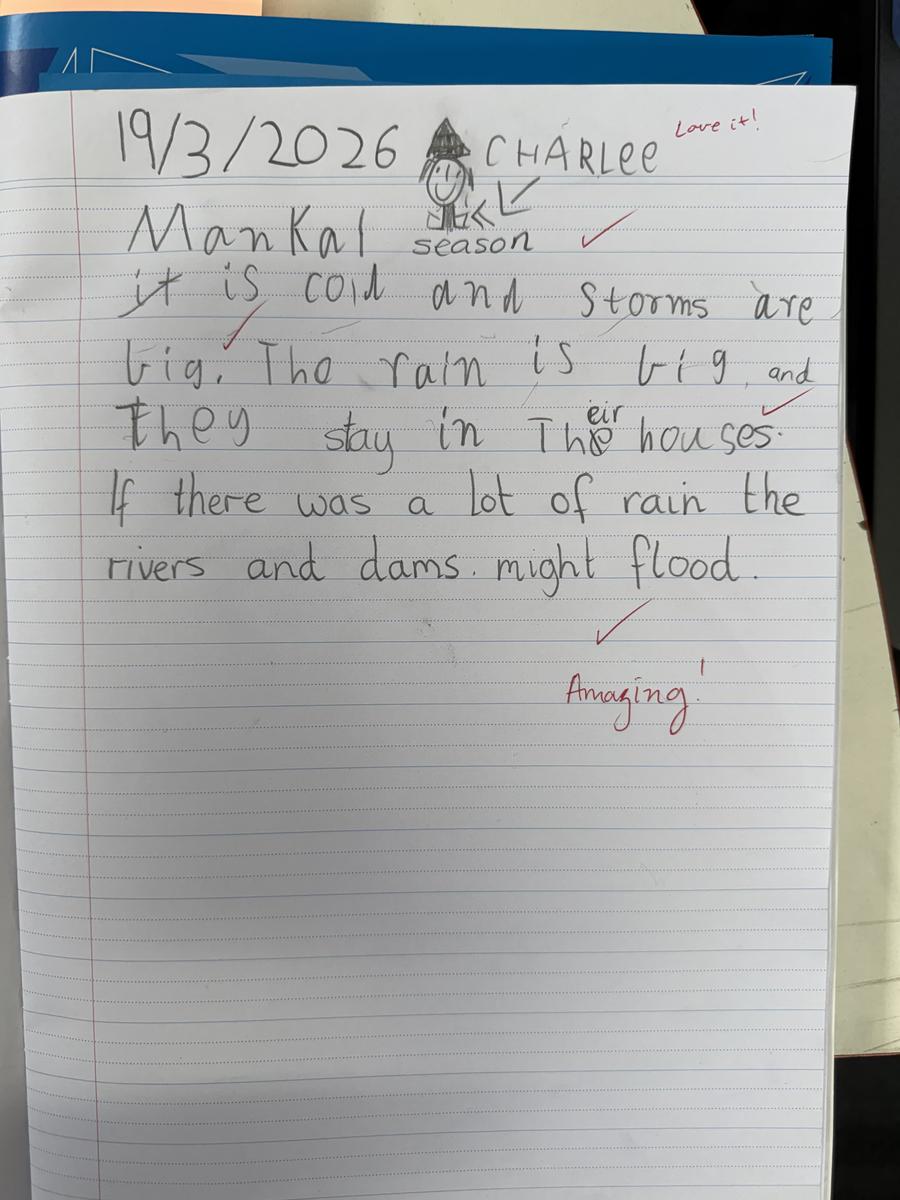 19/3/2026 CHARLEE Love it!
Mankal season
it is cold and storms are
big. The rain is big and
they stay in Their houses.
If there was a lot of rain the
rivers and dams. might flood.
Amazing!